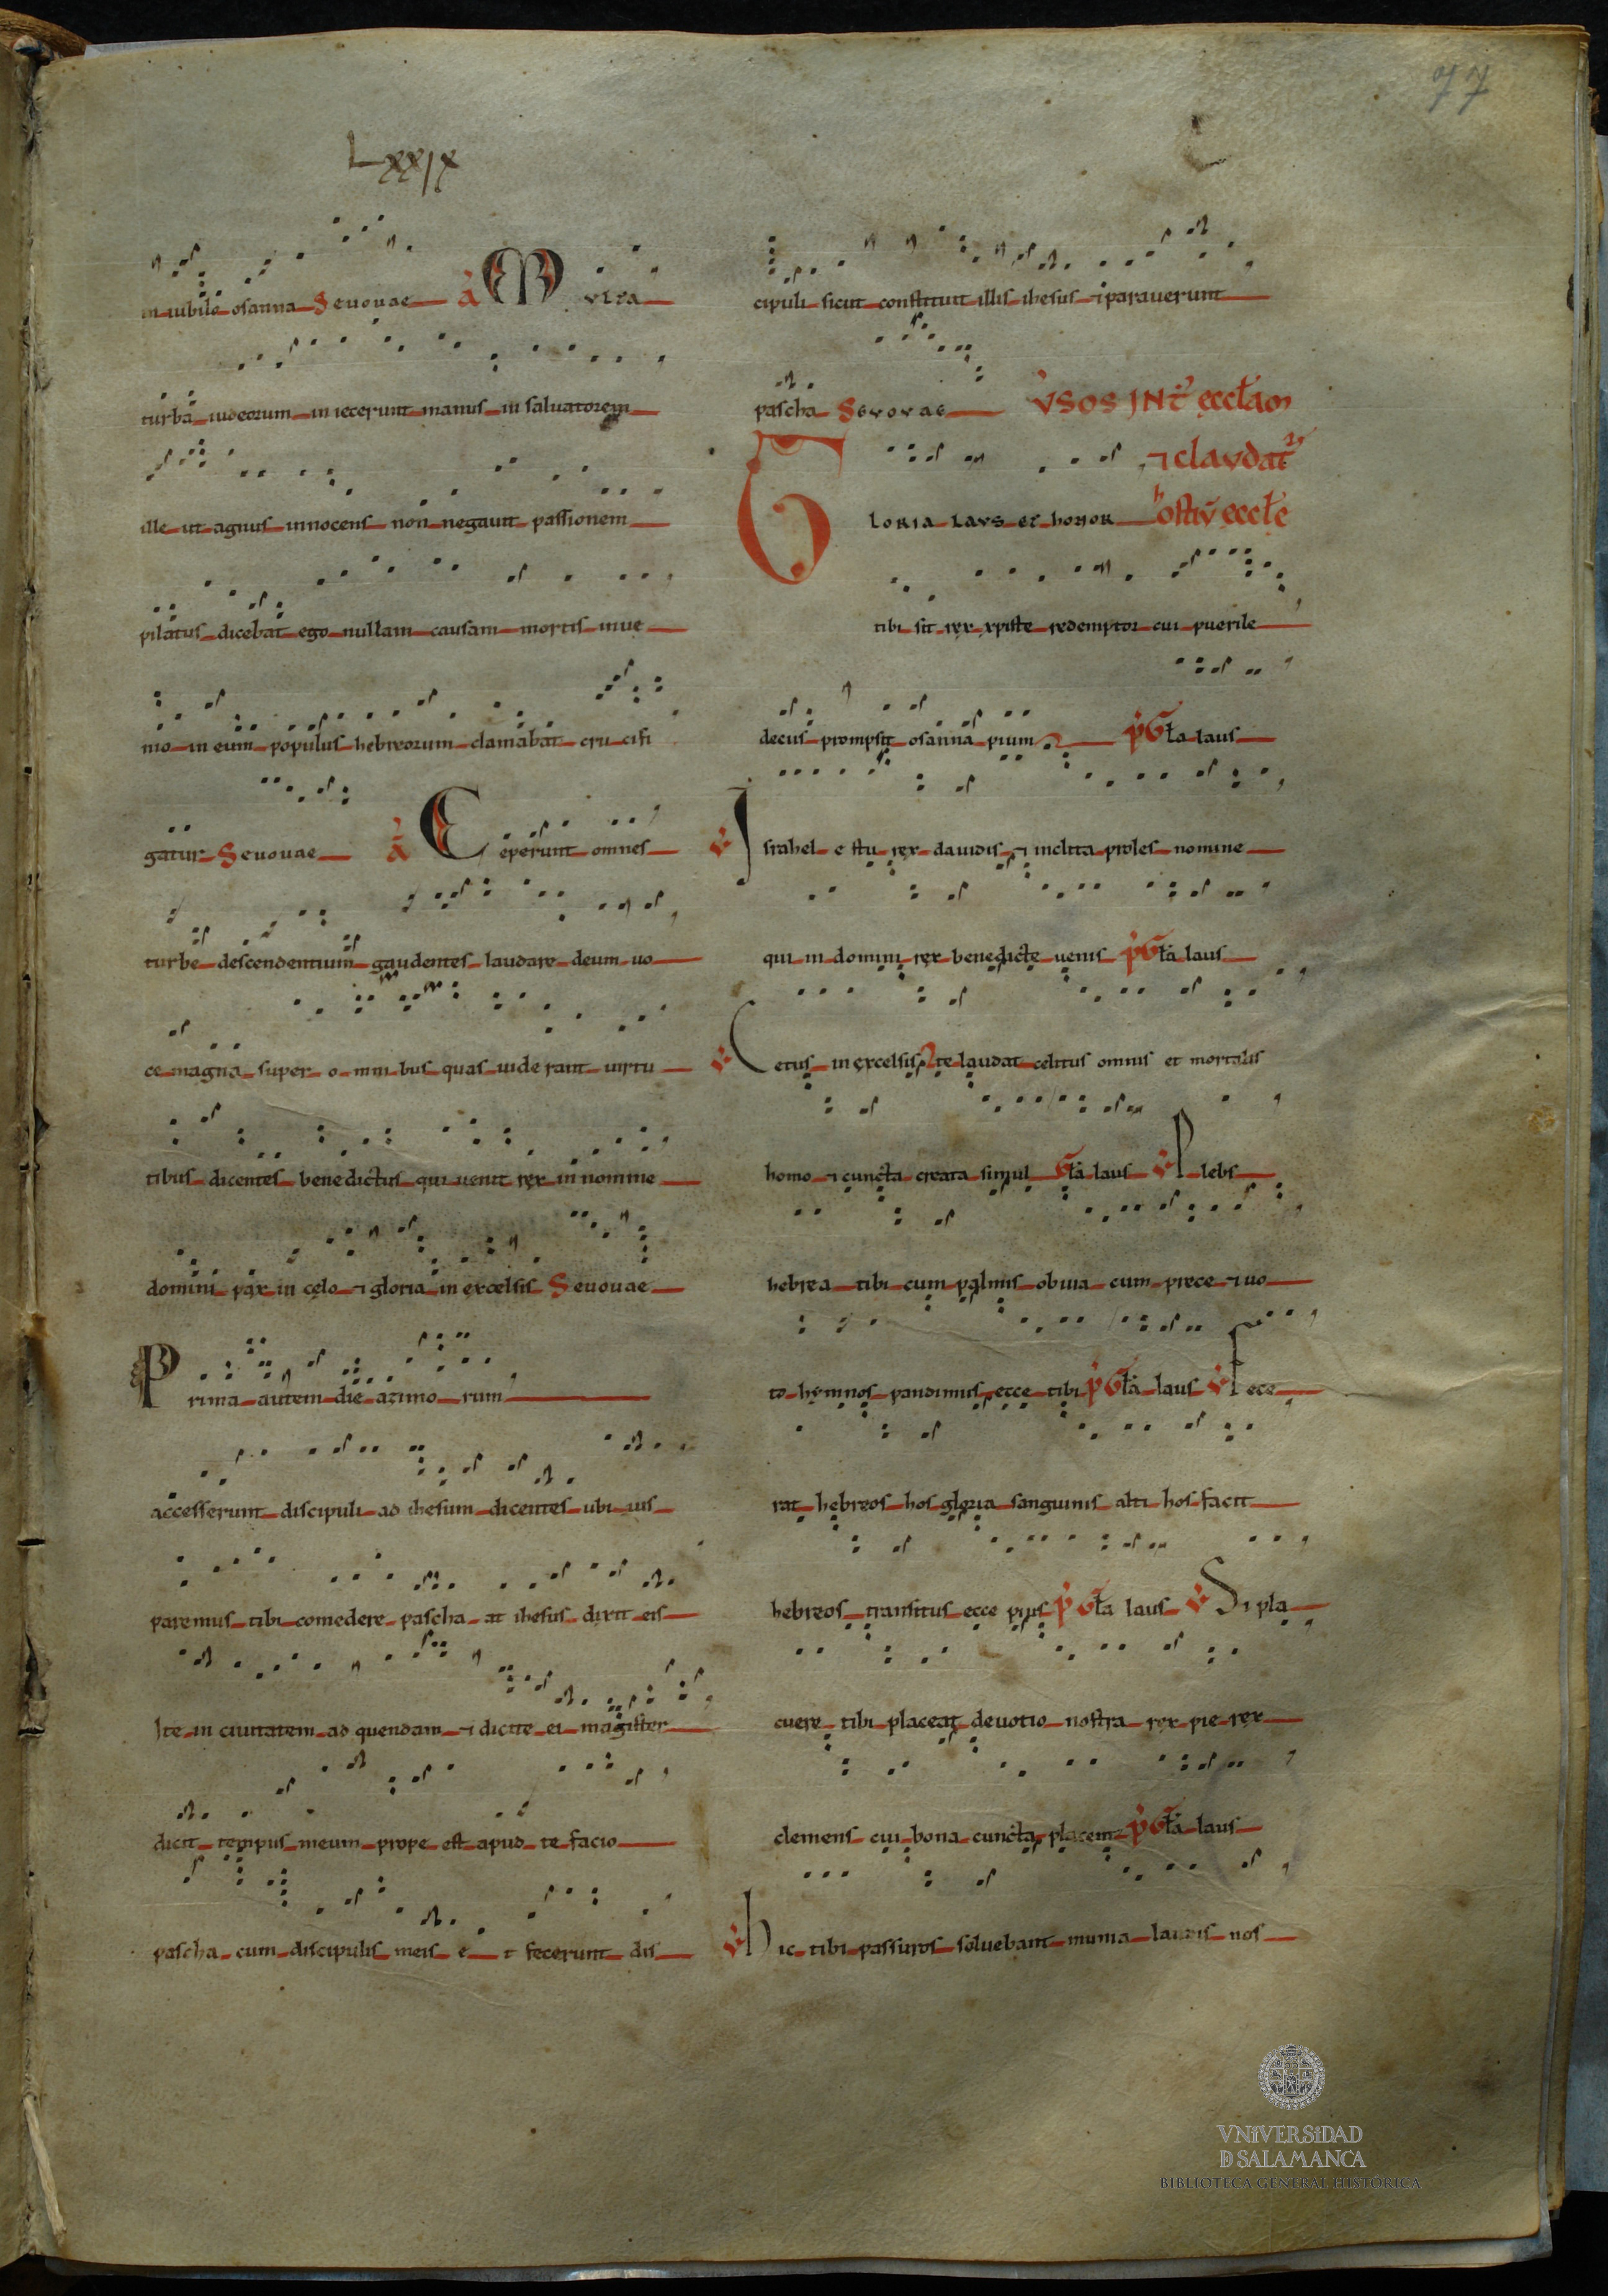 77
Lxxix
in iubilo osanna Seuouae a Multa
turba iudeorum in iecerunt manus in saluatorem
ille ut agnus innocens non negauit passionem
pilatus dicebat ego nullam causam mortis inue
nio in eum populus hebreorum clamabat cru cifi
gatur Seuouae a Ceperunt omnes
turbe descendentium gaudentes laudare deum uo
ce magna super o mni bus quas uide rant uirtu
tibus dicentes benedictus qui uenit rex in nomine
domini pax in celo ⁊ gloria in excelsis Seuouae
Prima autem die azimo rum
accesserunt discipuli ad ihesum dicentes ubi uis
paremus tibi comedere pascha at ihesus dixit eis
Ite in ciuitatem ad quendam ⁊ dicite ei magister
dicit tempus meum prope est apud te facio
pascha cum discipulis meis e t fecerunt dis
cipuli sicut constituit illis ihesus ⁊ parauerunt
pascha Seuouae
⁊ claudat᷑
Gloria laus et honor
tibi sit rex xpiste redemptor cui puerile
decus prompsit osanna pium p̓ Gła laus
v̓ Israhel e s tu rex dauidis ⁊ inclita proles nomine
qui in domini rex benedicte uenis p̓ Gła laus
v̓ Cetus in excelsis te laudat celitus omnis et mortalis
homo ⁊ cuncta creata simul Gła laus v̓ Plebs
hebrea tibi cum palmis obuia cum prece ⁊ uo
to hymnos pandimus ecce tibi p̓ Gła laus v̓ Fece
rat hebreos hos gloria sanguinis alti hos facit
hebreos transitus ecce pius p̓ Gła laus v̓ Si pla
cuere tibi placeat deuotio nostra rex pie rex
clemens cui bona cuncta placent p̓ Gła laus
v̓ hic tibi passuros soluebant munia laudis nos
VNiVERSiDAD
D SALAMANCA
BIBLIOTECA GENERAL HISTÓRICA